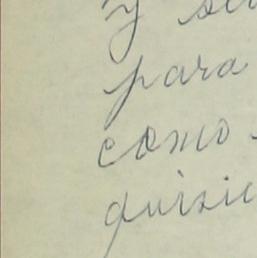 y
para
como
quisie